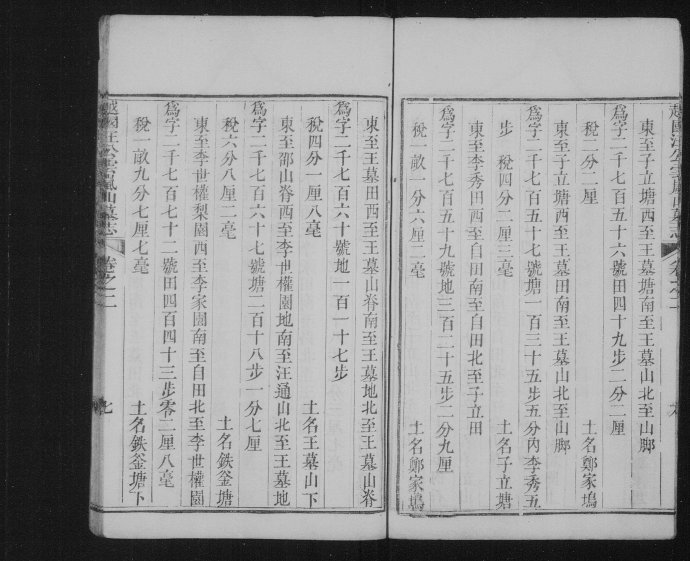 越國汪公雲嵐山墓志　卷之二
東至子立塘西至王墓塘南至王墓山北至山脚
爲字二千七百五十六號田四十九步二分二厘
稅二分二毫　土名鄭家塢
東至子立塘西至王墓田南至王墓北至山脚
爲字二千七百五十七號塘一百三十五步五分內李秀五
步　稅四分二厘三毫　土名子立塘
東至李秀田西至自田南至自田北至子立田
爲字二千七百五十九號地三百二十五步二分九厘
稅一畝二分六厘二毫　土名鄭家塢
東至王墓田西至王墓山脊南至王墓地北至王墓山脊
爲字二千七百六十號地一百一十七步
稅四分一厘八毫　土名王墓山下
東至邵山脊西至李世權園地南至汪通山北至王墓地
爲字二千七百六十七號塘二百十八步一分七厘
稅六分八厘二毫　土名鉄釜塘
東至李世權梨園西至李家園南至自田北至李世權園
爲字二千七百七十二號田四百四十三步零二厘八毫
稅一畝九分七厘七毫　土名鉄釜塘下
越國汪公雲嵐山墓志　卷之二　七